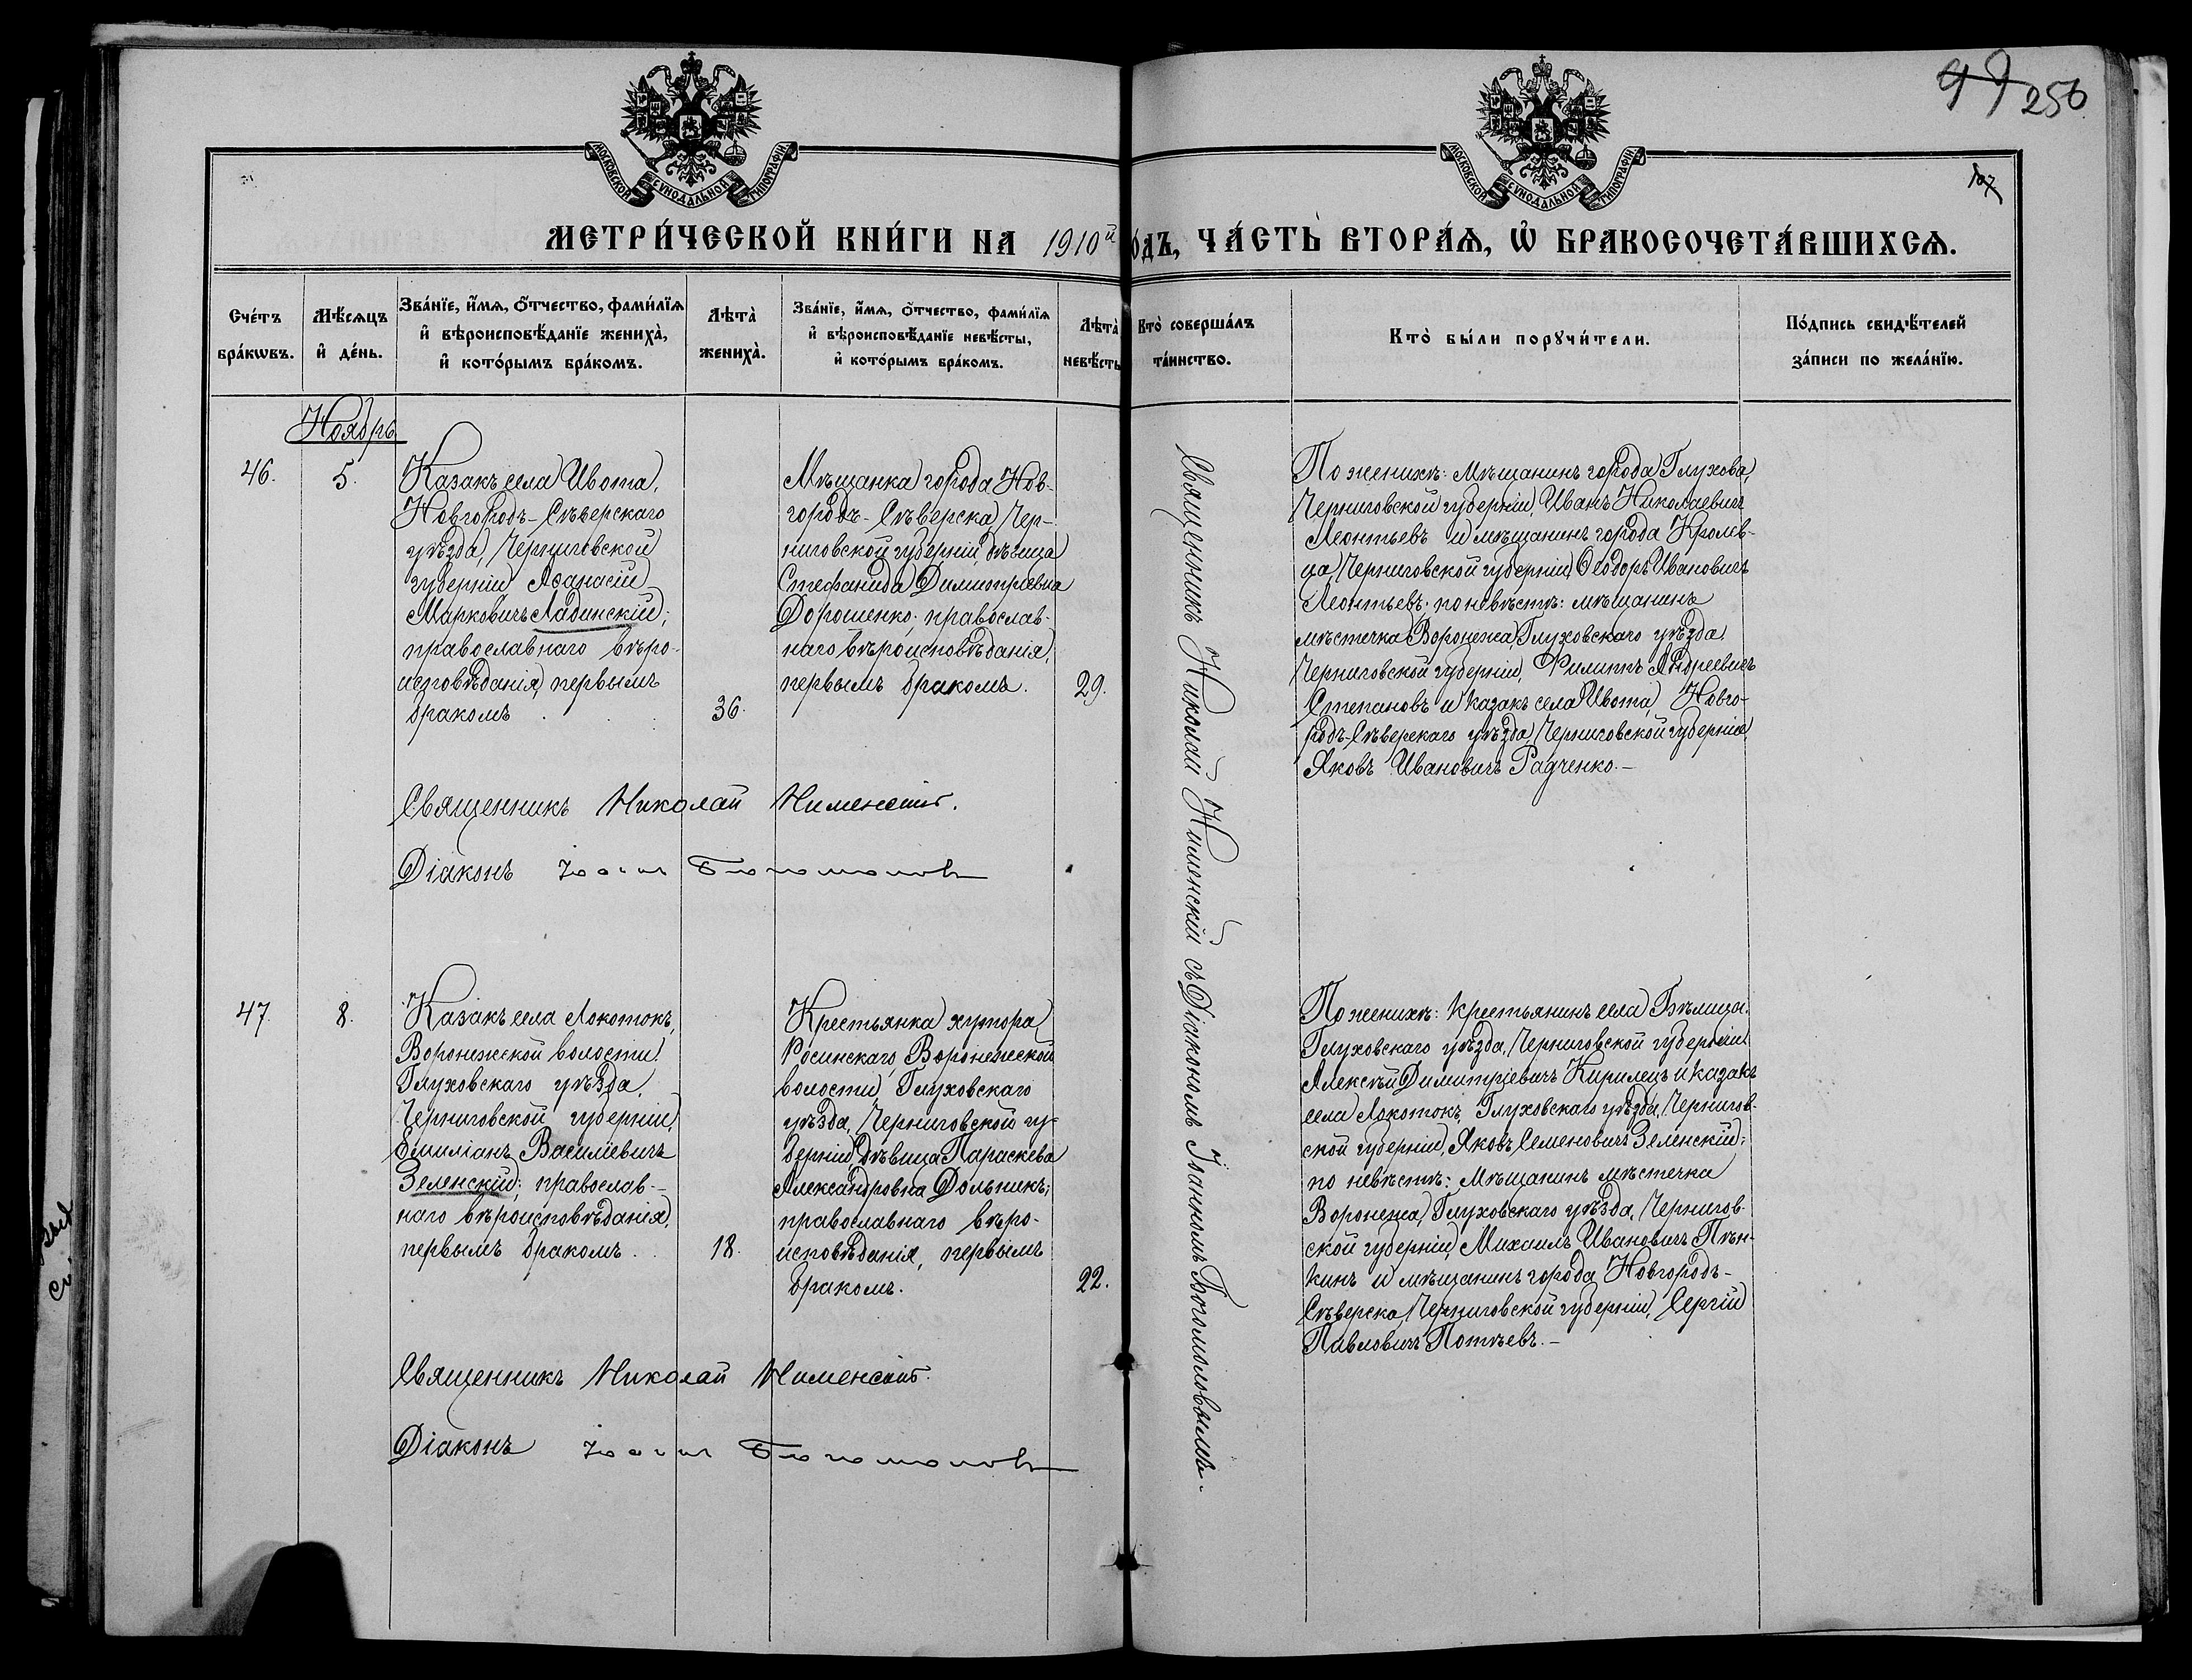 99 256
107
МОСКОВСКОЙ СѴНОДАЛЬНОЙ ТИПОГРАФІИ
МОСКОВСКОЙ СѴНОДАЛЬНОЙ ТИПОГРАФІИ
МЕТРИ́ЧЕСКОЙ КНИ́ГИ НА 1910й о́дъ, ЧА́СТЬ ВТОРА́Ѧ, Ѡ҆ БРАКОСОЧЕТА́ВШИХСѦ.
Сче́тъ бра́кѡвъ.
Мѣ́сѧцъ и҆ де́нь.
Зва́нїе, и҆́мѧ, ѻ҆́тчество, фами́лїѧ
и҆ вѣроисповѣ́данїе жениха̀,
и҆ кото́рымъ бра́комъ.
Лѣта̀ жениха̀.
Зва́нїе, и҆́мѧ, ѻ҆́тчество, фами́лїѧ
и҆ вѣроисповѣ́данїе невѣ́сты,
и҆ кото́рымъ бра́комъ.
Лѣта̀ невѣ́сты
Кто̀ соверша́лъ та́инство.
Кто̀ бы́ли порꙋчи́тели.
По́дпись свидѣ́телей
за́писи по жела́нїю.
Ноябрь
46.
5.
Казакъ села Ивота,
Новгородъ-Сѣверскаго
уѣзда, Черниговской
губерніи Аѳанасій
Марковичъ Ладинскій;
православнаго вѣро-
исповѣданія, первымъ
бракомъ
36.
Мѣщанка города Нов-
городъ-Сѣверска, Чер-
ниговской губерніи, дѣвица
Стефанида Димитріевна
Дорошенко; православ-
наго вѣроисповѣданія,
первымъ бракомъ.
29.
Священникъ Николай Нименскій съ Діакономъ Іоанномъ Богомоловымъ.
По женихѣ: мѣщанинъ города Глухова,
Черниговской губерніи, Иванъ Николаевичъ
Леонтьевъ и мѣщанинъ города Кролев-
ца, Черниговской губерніи, Ѳеодоръ Ивановичъ
Леонтьевъ; по невѣстѣ: мѣщанинъ
мѣстечка Воронежа, Глуховскаго уѣзда,
Черниговской губерніи, Филиппъ Андреевичъ
Степановъ и казакъ села Ивота, Новго-
родъ-Сѣверскаго уѣзда, Черниговской губерніи
Яковъ Ивановичъ Радченко.—
Священникъ Николай Нименскій.
Діаконъ Іоаннъ Богомоловъ
47.
8.
Казакъ села Локотокъ,
Воронежской волости,
Глуховскаго уѣзда,
Черниговской губерніи,
Емиліанъ Василіевичъ
Зеленскій; православ-
наго вѣроисповѣданія,
первымъ бракомъ.
18.
Крестьянка хутора
Росинскаго, Воронежской
волости, Глуховскаго
уѣзда, Черниговской гу-
берніи, дѣвица Параскева
Александровна Дольникъ;
православнаго вѣро-
исповѣданія, первымъ
бракомъ.
22.
По женихѣ: крестьянинъ села Бѣлицы,
Глуховскаго уѣзда, Черниговской губерніи
Алексѣй Димитріевичъ Кирилецъ и казакъ
села Локотокъ, Глуховскаго уѣзда, Чернигов-
ской губерніи, Яковъ Семеновичъ Зеленскій;
по невѣстѣ: Мѣщанинъ мѣстечка
Воронежа, Глуховскаго уѣзда, Чернигов-
ской губерніи, Михаилъ Ивановичъ Пѣн-
кинъ и мѣщанинъ города Новгородъ-
Сѣверска, Черниговской губерніи, Сергій
Павловичъ Потѣевъ.—
Священникъ Николай Нименскій.
Діаконъ Іоаннъ Богомоловъ